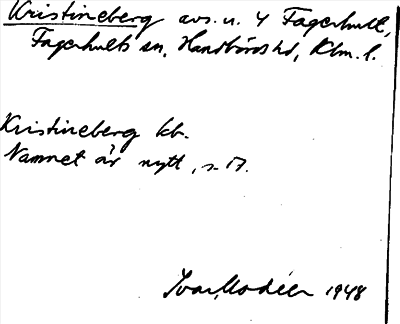 Kristineberg avs. u. 4 Fagerhult,
Fagerhults sn, Handbörds hd, Klm. l.
Kristineberg kb.
Namnet är nytt, s. D.
Ivar Modéer 1948